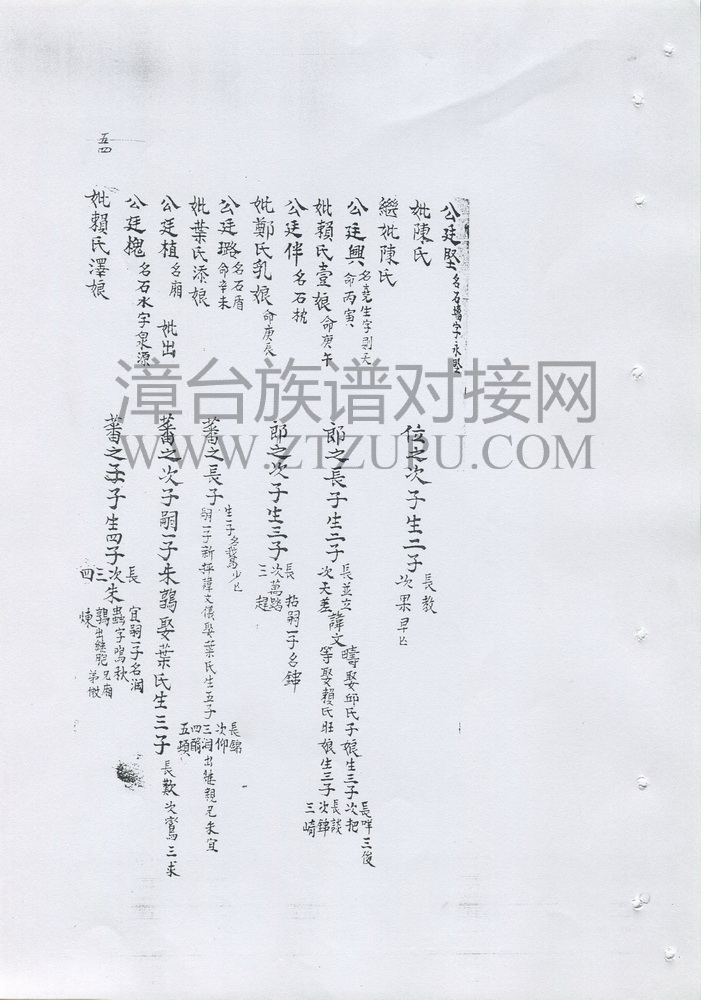 公廷堅 名石墻字永堅
妣陳氏
位之次子生二子 長教 次果早亡
繼妣陳氏
公廷興 名堯生字則天 命丙寅
妣賴氏壹娘 命庚午
郎之長子生二子 長並立 諱文疇娶邱氏子娘生三子 長咩 次把 三俊
次天差 諱文等娶賴氏旺娘生三子 長談 次錦 三崎
公廷伴 名石枕
妣鄭氏乳娘 命庚辰
郎之次子生三子 長 拈嗣一子名錦 次萬 三
公廷璐 名石盾 命辛未
妣葉氏添娘
蕃之長子 生一子名鶩少亡
嗣一子新 諱文儀娶葉氏生五子 長 次仰 三润出继親兄朱宜 四 五
公廷植 名廟 妣出
蕃之次子嗣一子朱鶉娶葉氏生三子 長歎 次鶩 三求
公廷槐 名石水字泉源
妣賴氏澤娘
蕃之子生四子 長朱宜嗣一子名润 次 字鳴秋 三鶉出継胞兄廟 四煉
五四
漳台族谱对接网
WWW.ZTZUPU.COM